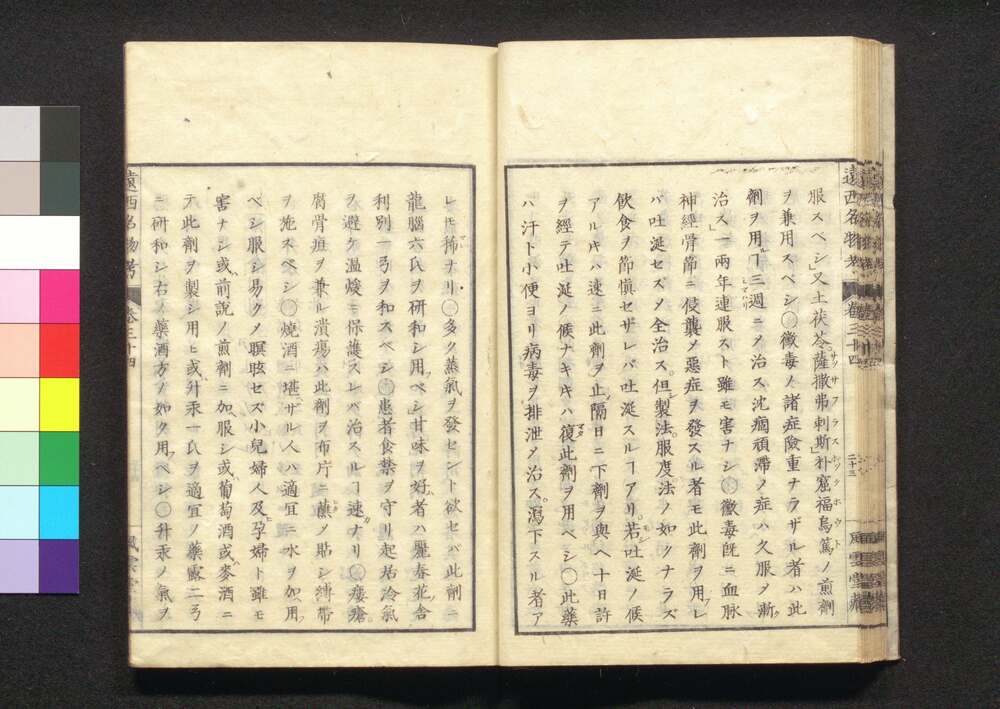 遠西名物考 卷三十四 二十三 風雲堂藏
服スベシ」又土茯苓薩撒弗剌斯」朴窟福烏篤ノ煎劑
ヲ兼用スベシ〇黴毒ノ諸症險重ナラザル者ハ此
劑ヲ用ヿ三週ニノ治ス沈痼頑滯ノ症ハ久服ヲ漸ク
治ス」一兩年連服スト雖モ害ナシ〇黴毒旣ニ血脉
神經骨節ニ侵襲メ惡症ヲ發スル者モ此劑ヲ用レ
バ吐涎セズメ全治ス。但シ製法。服度法ノ如クナラズ
飲食ヲ節慎セザレバ吐涎スルヿアリ。若シ吐涎ノ候
アルキハ速ニ此劑ヲ止メ隔日ニ下劑ヲ與ヘ十日許
ヲ經テ吐涎ノ候ナキキハ復タ此劑ヲ用ベシ〇此藥
ハ汗ト小便ヨリ病毒ヲ排泄メ治ス。瀉下スル者ア
レモ稀ナリ〇多ク蒸氣ヲ發セント欲セバ此劑ニ
龍腦六氏ヲ研和シ用ベシ甘味ヲ好者ハ麗春花舍
利別一弓ヲ和スベシ〇患者食禁ヲ守リ起居冷氣
ヲ避ケ温煖ニ保護スレバ治スルヿ速ナリ〇瘻瘡。
腐骨疽ヲ兼ル潰瘍ハ此劑ヲ布片ニ蘸メ貼シ縛帶
ヲ施スベシ〇燒酒ニ堪ザル人ハ適宜ニ水ヲ加用フ
ベシ服シ易クメ瞑眩セズ小兒婦人及孕婦ト雖モ
害ナシ或ハ前說ノ煎劑ニ加服シ或ハ葡萄酒或ハ麥酒ニ
テ此劑ヲ製シ用ヒ或ハ升汞一氏ヲ適宜ノ藥露二弓
ニ研和シ右ノ藥酒方ノ如ク用ベシ〇升汞ノ氣ヲ
遠西名物考 卷三十四